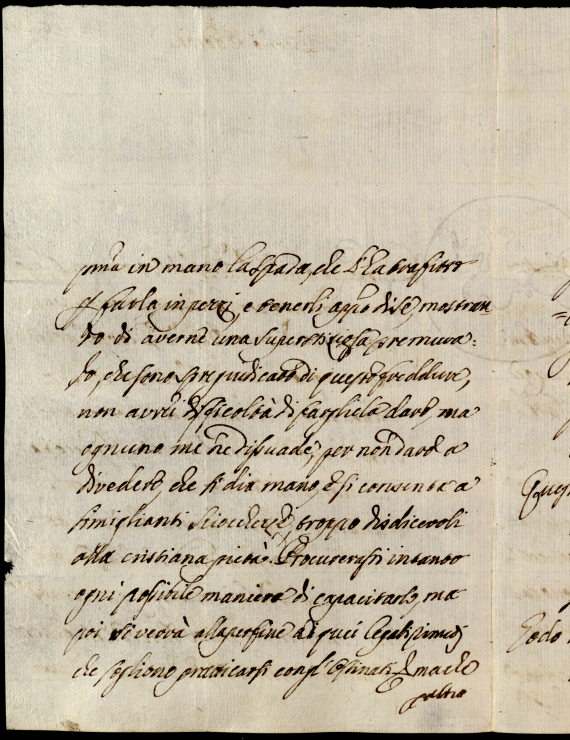 pma in mano la Spada, che l'ha trafitto
p farla in pezzi, e tenerli appo di se, mostran-
do di averne una superstitiosa premura:
Io, che sono spregiudicato di queste freddure,
non avrei difficoltà di fargliela dare, ma
ognuno me ne dissuade, per non dare a
divedere, che si dia mano, e si consenta a
simiglianti sciocchezze troppo disdicevoli
alla cristiana pietà. Procurerassi intanto
ogni possibile maniera di capacitarlo, ma
poi si vedrà alla perfine di quei legali rimedj
che sogliono praticarsi congl'Ostinati,
altro
Quest
Godo